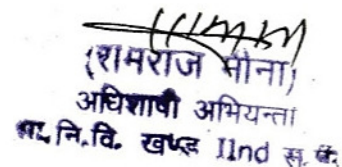 (रामराज मीना)
अधिशाषी अभियन्ता
सा.नि.वि. खण्ड IInd स.